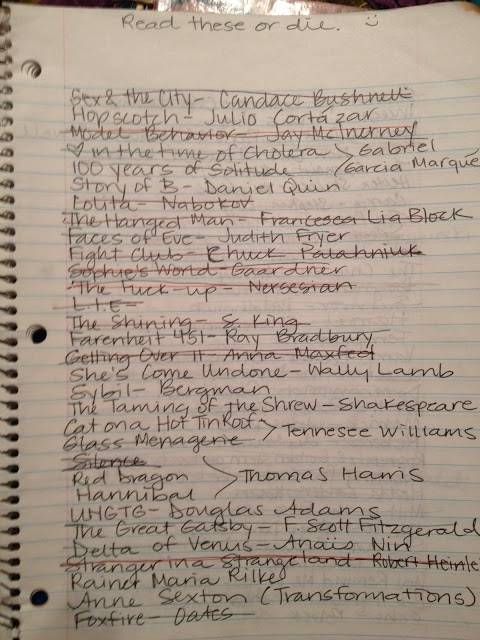 Read these or die. :)
Sex & the City - Candace Bushnell
Hopscotch - Julio Cortázar
Model Behavior - Jay McInerney
♡ in the time of Cholera > Gabriel
100 years of Solitude Garcia Marque
Story of B - Daniel Quin
Lolita - Nabokov
The Hanged Man - Francesca Lia Block
Faces of Eve - Judith Fryer
Fight Club - Chuck Palahniuk
Sophie's World - Gaardner
The Fuck-up - Nersesian
L.I.E.
The Shining - S. King
Farenheit 451 - Ray Bradbury
Getting Over It - Anna Maxted
She's Come Undone - Wally Lamb
Sybil - Bergman
The Taming of the Shrew - Shakespeare
Cat on a Hot Tin Roof > Tennesee Williams
Glass Menagerie
Silence
Red Dragon > Thomas Harris
Hannibal
UHGTG - Douglas Adams
The Great Gatsby - F. Scott Fitzgerald
Delta of Venus - Anaïs Nin
Stranger in a Strangeland - Robert Heinle
Rainer Maria Rilke
Anne Sexton (Transformations)
Foxfire - Oates